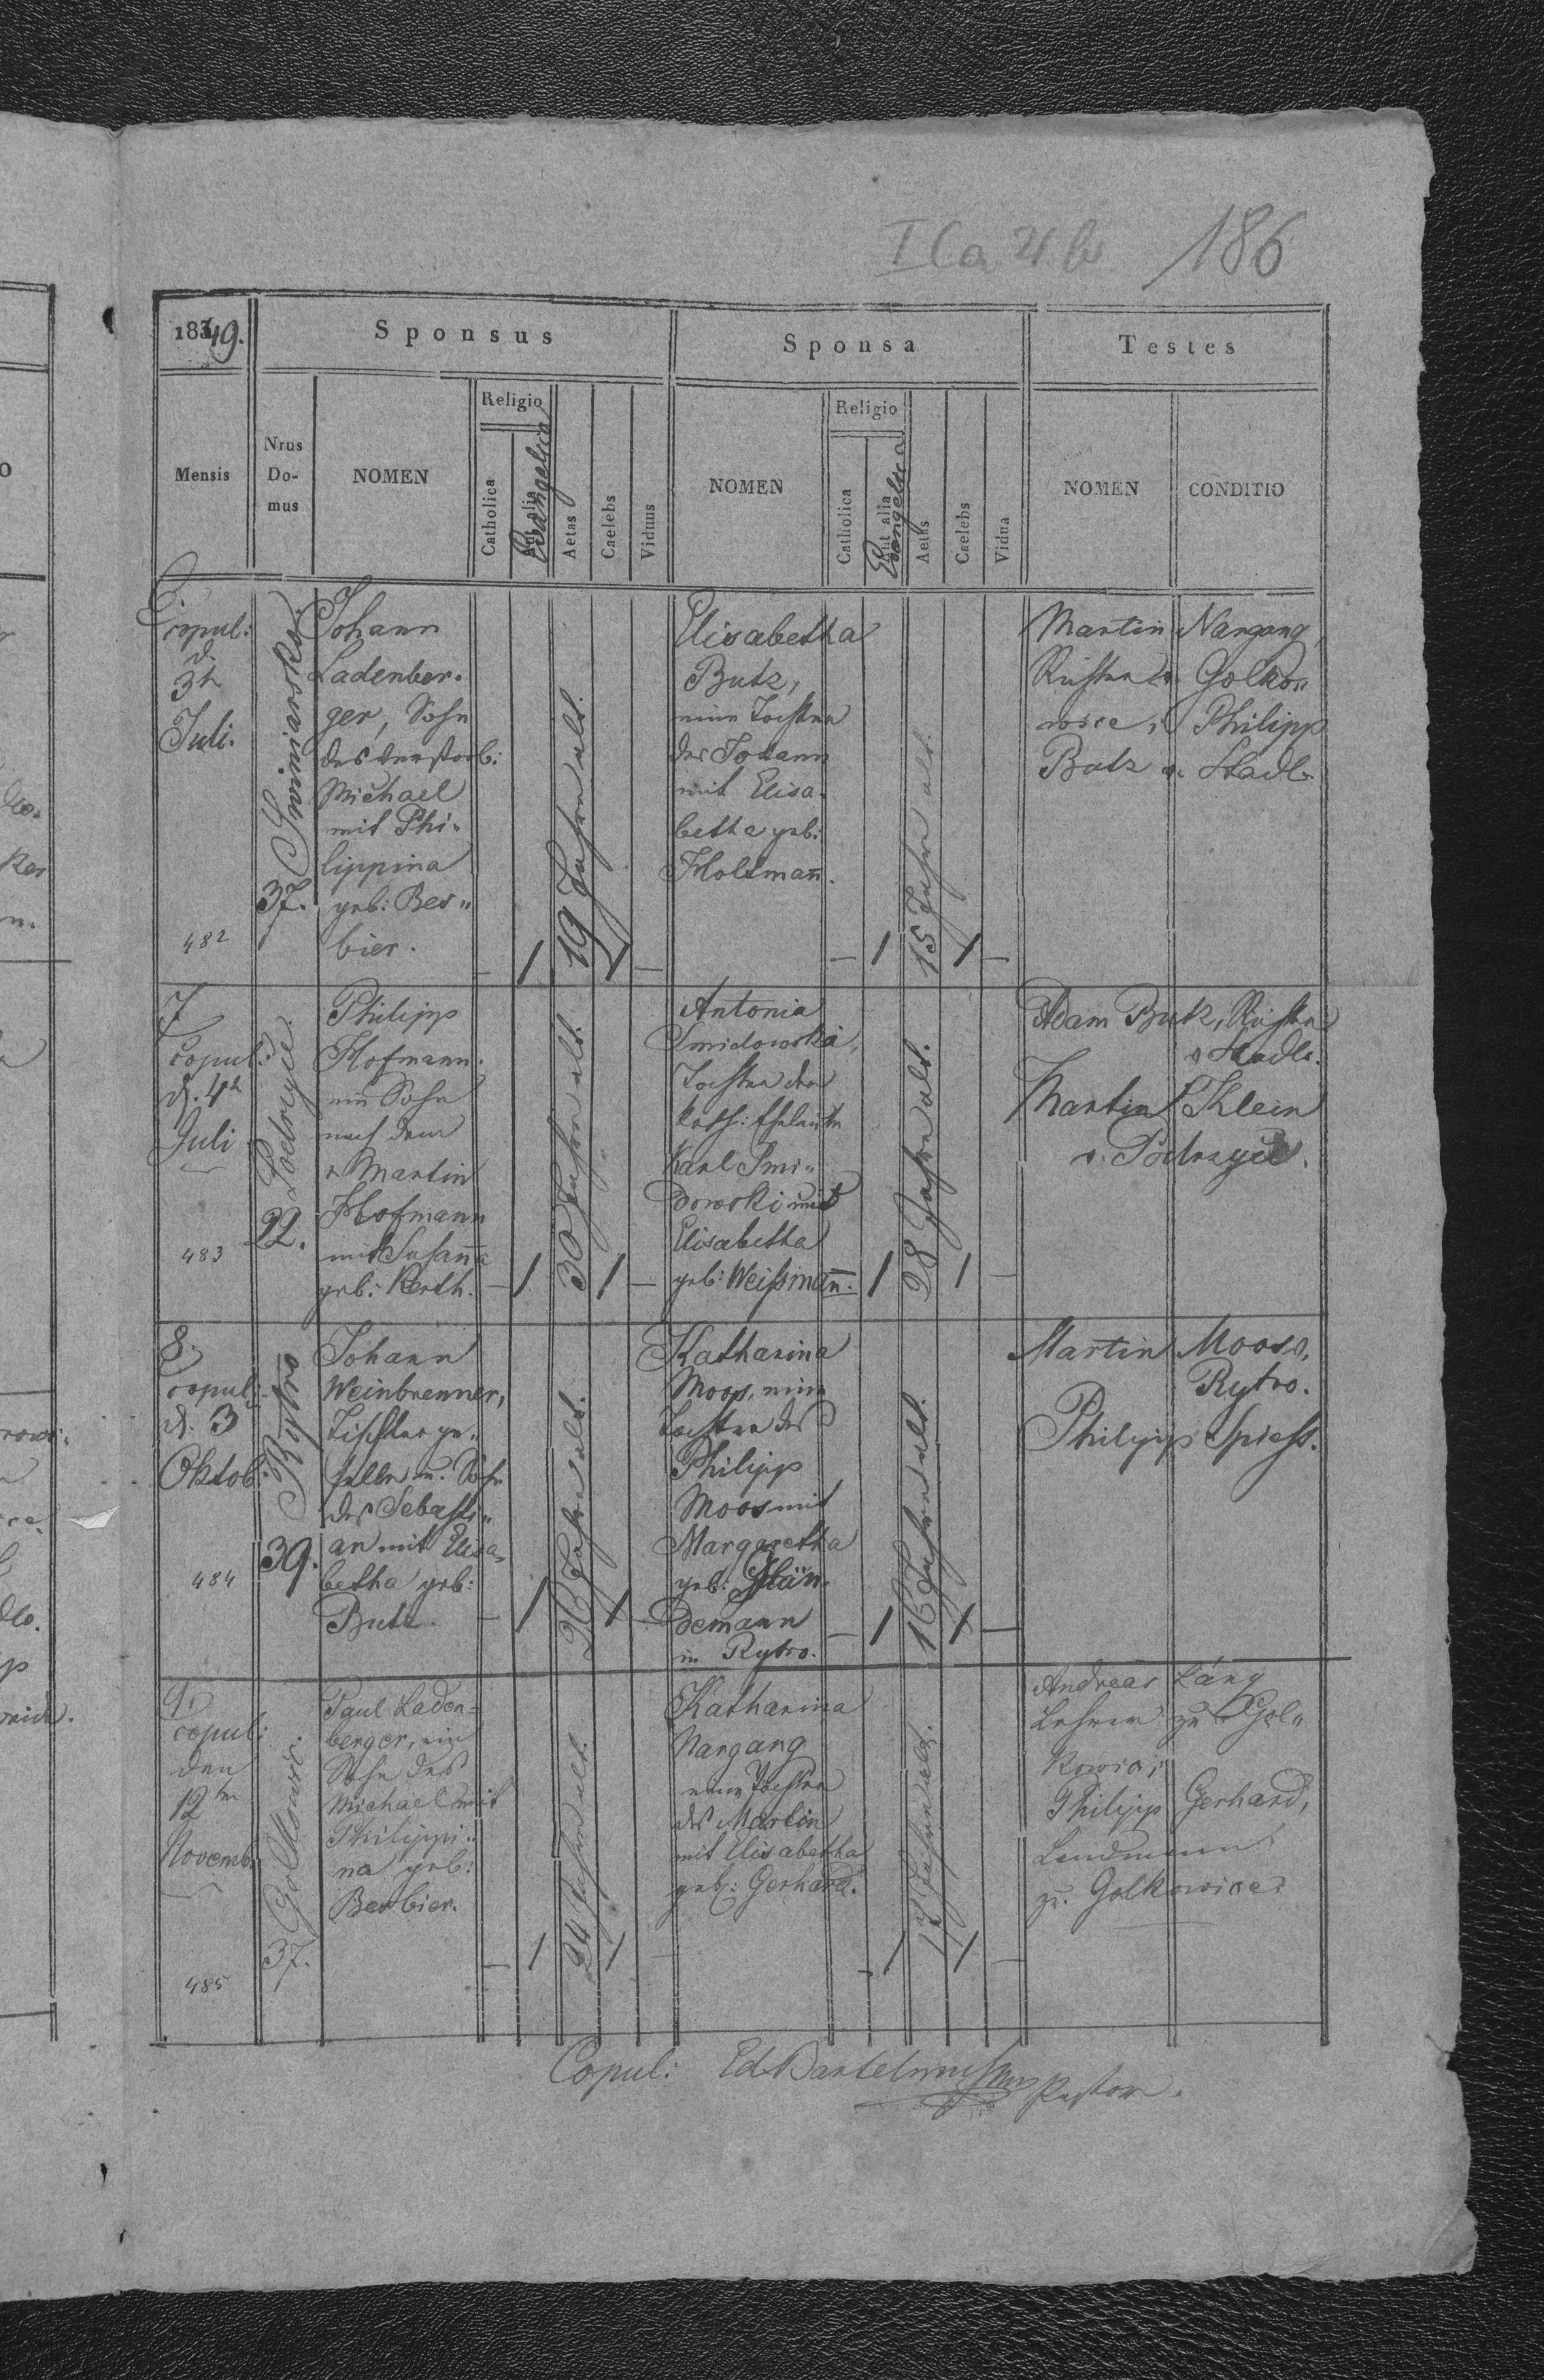 186
1849.
Sponsus
Sponsa
Testes
Mensis
Nrus Do-mus
NOMEN
Religio
Catholica
Aut alia
Evangelica
Aetas
Caelebs
Viduus
NOMEN
Religio
Catholica
Aut alia
Evangelica
Aetas
Caelebs
Vidua
NOMEN
CONDITIO
copul:
d.
3t
Juli.
482
Swiniarsko.
37.
Johann
Ladenber-
ger, Sohn
des verstorb:
Michael
mit Phi-
lippina
geb: Ber"
bier.
— 1 19 Jahre alt. 1 —
Elisabetha
Butz,
eine Tochter
des Johann
mit Elisa-
betha geb:
Holzmañ.
— 1 15 Jahre alt. 1 —
Martin Nargang,
Richter v. Golko"
wice, Philipp
Butz v. Stadlo
7
copul:
d. 4t
Juli
483
Podrzyce.
22.
Philipp
Hofmann
ein Sohn
nach dem
v Martin
Hofmann
mit Susaña
geb: Kerth.
— 1 30 Jahre alt. 1 —
Antonia
Smidowska,
Tochter der
kath: Eheleute
Karl Smi"
dowski mit
Elisabetha
geb: Weißmañ.
1 28 Jahre alt. 1 —
Adam Butz, Richter
v Stadlo.
Martin Klein
v. Podrzyce.
8.
copul:
d. 3
Oktob:
484
Rytro
39.
Johann
Weinbrenner,
Tischlerge"
selle u. Sohn
des Sebasti"
an mit Elisa-
betha geb:
Butz.
— 1 26 Jahre alt. 1 —
Katharina
Moos, eine
Tochter des
Philipp
Moos mit
Margaretha
geb:
demann
in Rytro.
— 1 16 Jahre alt. 1 —
Martin Moos v.
Rytro.
Philipp Spiess.
9.
copul:
den
12ten
Novemb:
485
Golkowic.
37.
Paul Laden=
berger, ein
Sohn des
Michael mit
Philippi"
na geb:
Berbier.
— 1 24 Jahre alt. 1 —
Katharina
Nargang
eine Tochter
des Martin
mit Elisabetha
geb: Gerhard.
— 1 17 Jahre alt. 1 —
Andreas Láng
Lehrer zu Gol"
kowice;
Philipp Gerhard,
Landmann
zu Golkowice.
Copul: Ed Bartelmussius Pastor.